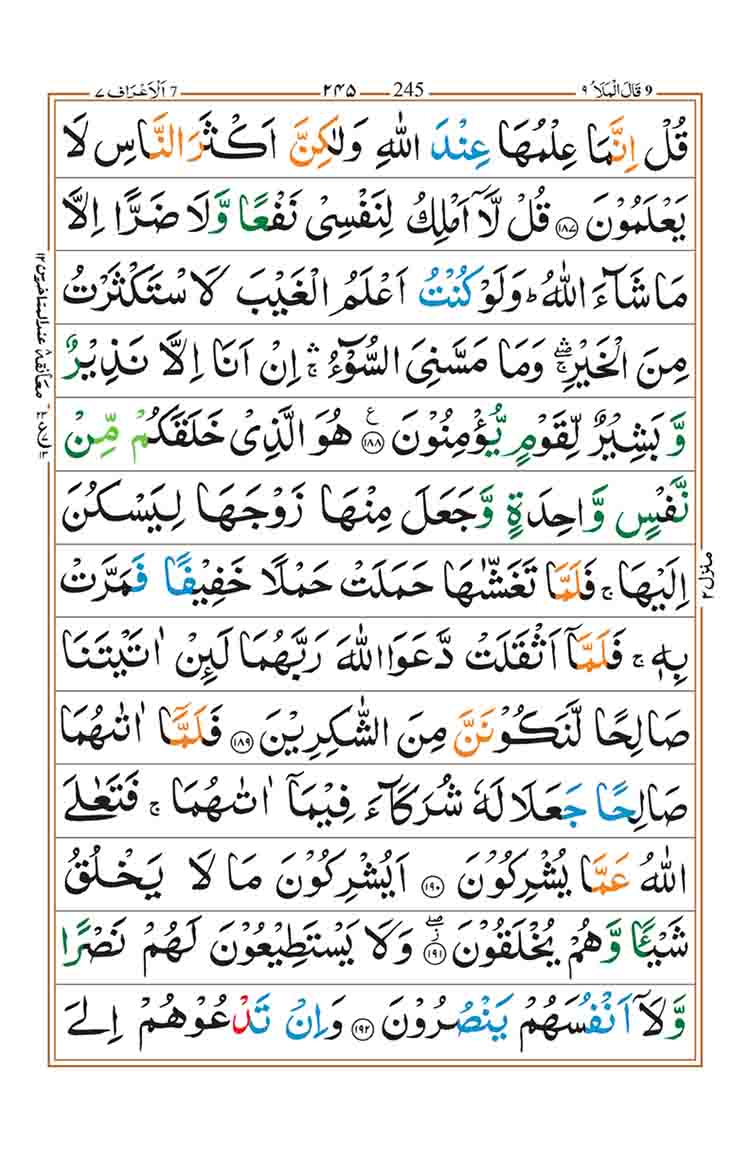 9 قَالَ الْمَلَاُ ٩ 245 ٢٤٥ 7 اَلْاَعْرَاف ٧
قُلْ اِنَّمَا عِلْمُهَا عِنْدَ اللّٰهِ وَلٰكِنَّ اَكْثَرَ النَّاسِ لَا
يَعْلَمُوْنَ ۝١٨٧ قُلْ لَّاۤ اَمْلِكُ لِنَفْسِیْ نَفْعًا وَّلَا ضَرًّا اِلَّا
مَا شَآءَ اللّٰهُ ؕ وَلَوْ كُنْتُ اَعْلَمُ الْغَيْبَ لَاسْتَكْثَرْتُ
مِنَ الْخَيْرِ ۛۖۚ وَمَا مَسَّنِیَ السُّوْٓءُ ۛۚ اِنْ اَنَا اِلَّا نَذِيْرٌ
وَّ بَشِيْرٌ لِّقَوْمٍ يُّؤْمِنُوْنَ ۝١٨٨ ع هُوَ الَّذِیْ خَلَقَكُمْ مِّنْ
نَّفْسٍ وَّاحِدَةٍ وَّجَعَلَ مِنْهَا زَوْجَهَا لِيَسْكُنَ
اِلَيْهَا ۚ فَلَمَّا تَغَشّٰىهَا حَمَلَتْ حَمْلًا خَفِيْفًا فَمَرَّتْ
بِهٖ ۚ فَلَمَّاۤ اَثْقَلَتْ دَّعَوَا اللّٰهَ رَبَّهُمَا لَئِنْ اٰتَيْتَنَا
صَالِحًا لَّنَكُوْنَنَّ مِنَ الشّٰكِرِيْنَ ۝١٨٩ فَلَمَّاۤ اٰتٰىهُمَا
صَالِحًا جَعَلَا لَهٗ شُرَكَآءَ فِيْمَاۤ اٰتٰىهُمَا ۚ فَتَعٰلَى
اللّٰهُ عَمَّا يُشْرِكُوْنَ ۝١٩٠ اَيُشْرِكُوْنَ مَا لَا يَخْلُقُ
شَيْـًٔا وَّهُمْ يُخْلَقُوْنَ ۝١٩١ ۖز وَلَا يَسْتَطِيْعُوْنَ لَهُمْ نَصْرًا
وَّلَاۤ اَنْفُسَهُمْ يَنْصُرُوْنَ ۝١٩٢ وَاِنْ تَدْعُوْهُمْ اِلَى
معانقة عند المتاخرين ١٢
منزل ٢